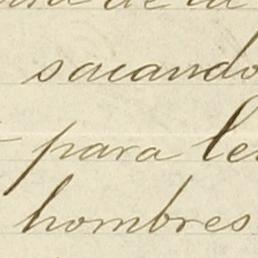 de la
sacando
para
hombres